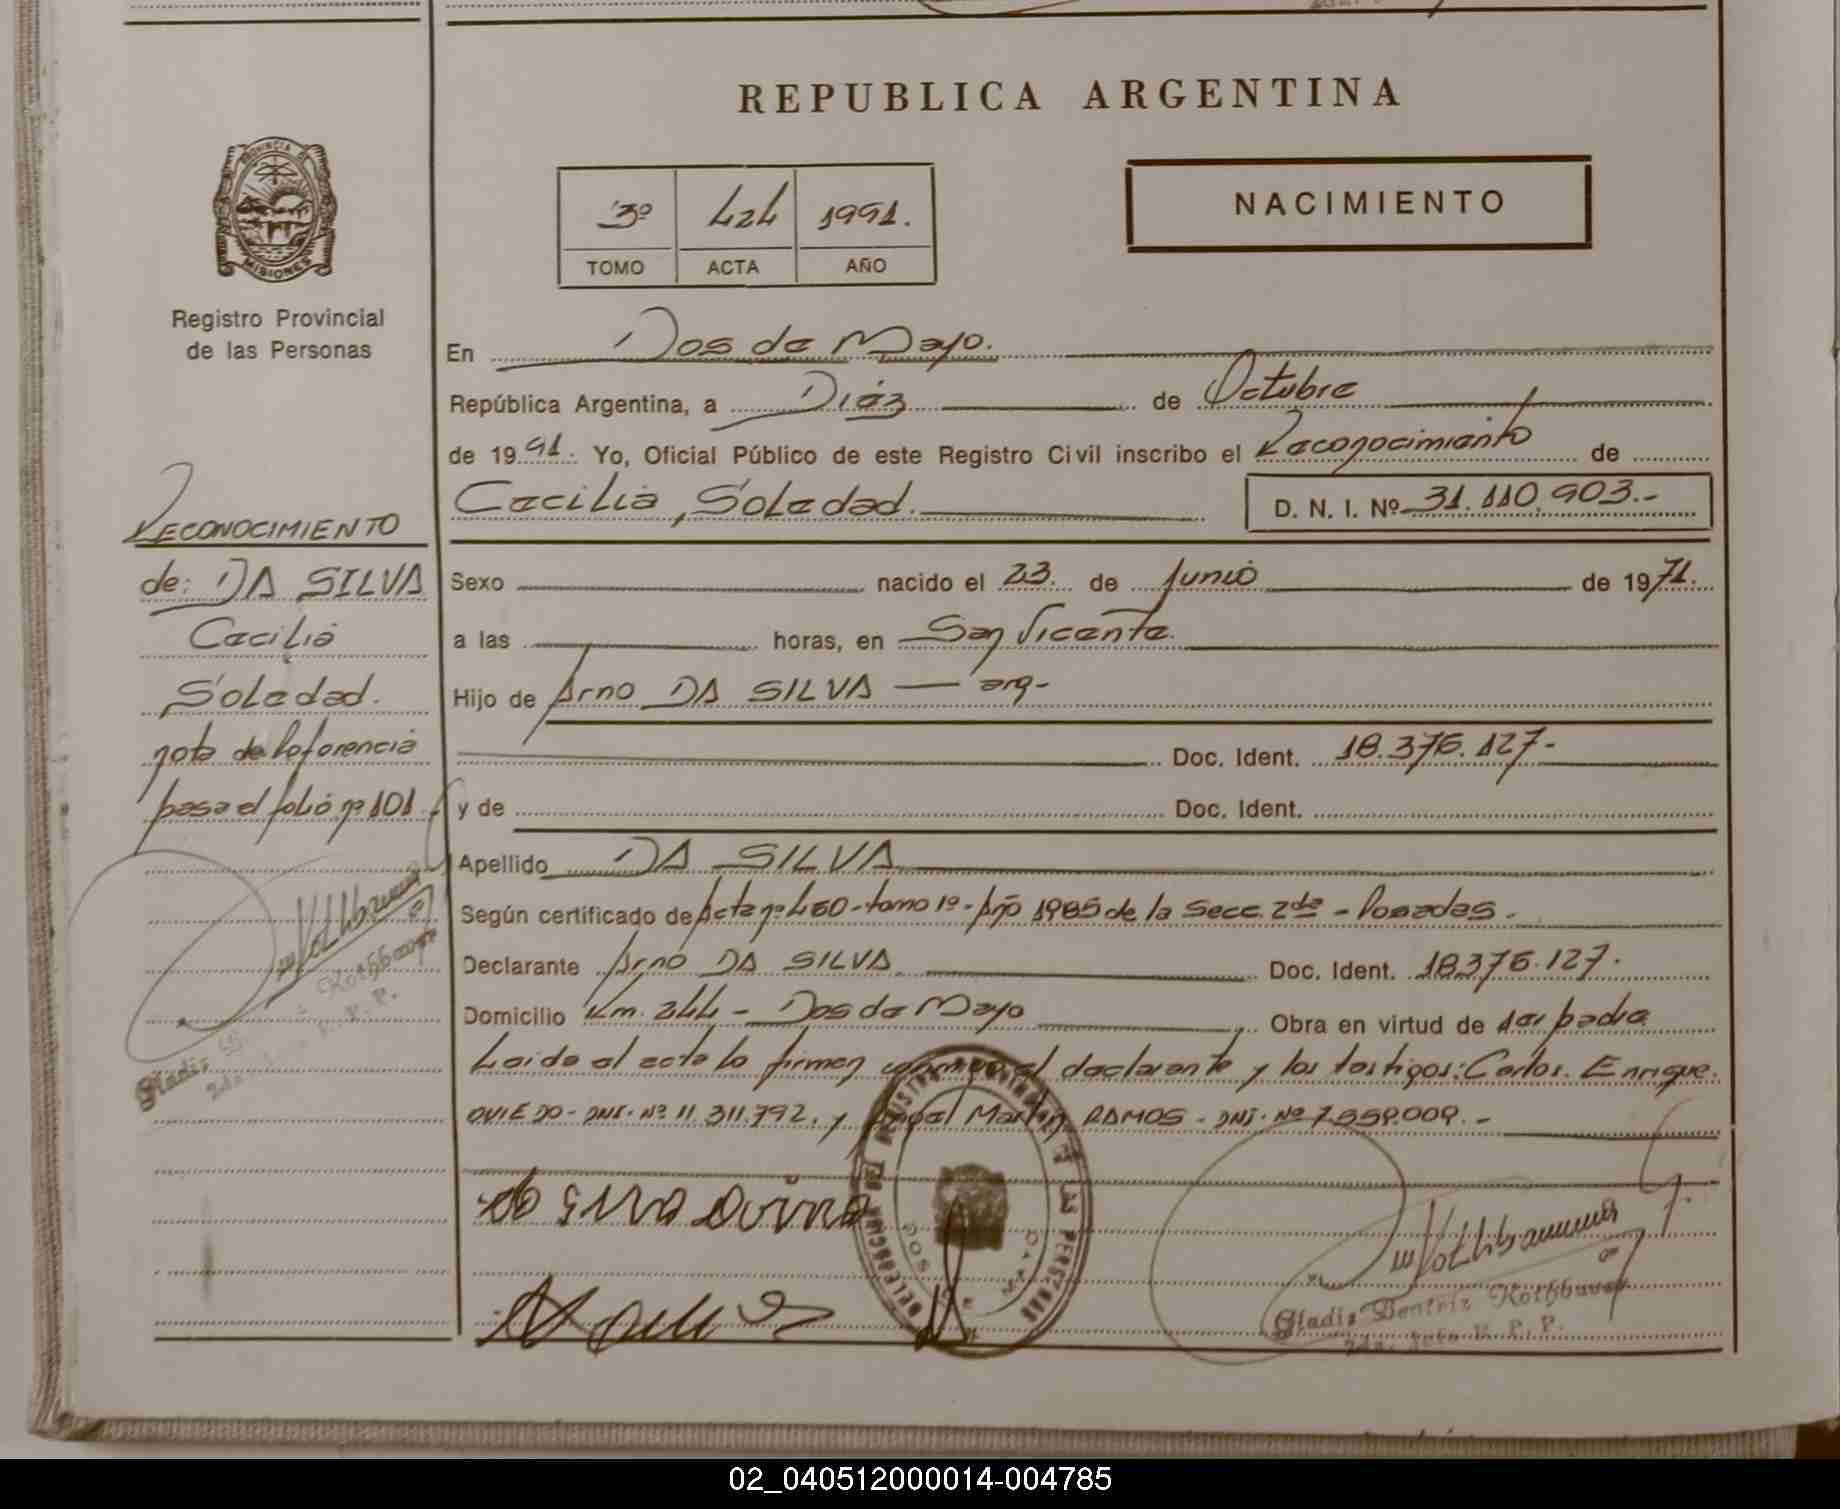 REPUBLICA ARGENTINA
PROVINCIA DE
MISIONES
Registro Provincial
de las Personas
3º 424 1991.
TOMO ACTA AÑO
NACIMIENTO
En Dos de Mayo.
República Argentina, a Diéz de Octubre
de 1991. Yo, Oficial Público de este Registro Civil inscribo el Reconocimiento de
Cecilia, Soledad. D. N. I. Nº 31.110.903.-
Sexo nacido el 23. de Junio de 1971.
a las horas, en San Vicente.
Hijo de Arno DA SILVA — arg-
Doc. Ident. 18.376.127-
y de Doc. Ident.
Apellido DA SILVA
Según certificado de Acta nº 460-tomo 1º-Año 1985 de la Secc. 2da - Posadas.
Declarante Arno DA SILVA Doc. Ident. 18.376.127.
Domicilio Km. 244 - Dos de Mayo Obra en virtud de ser padre
Leida el acta la firman conmigo el declarante y los testigos: Carlos. Enrique.
OVIEDO- DNI. Nº 11.311.792. y Angel Martin RAMOS - DNI. Nº 7.559.009.-
RECONOCIMIENTO
de: DA SILVA
Cecilia
Soledad.
nota de Referencia
pasa el folio nº 101.
Gladis
Gladis Beatriz Rothbauer
2da. Jefe R. P. P.
02_040512000014-004785